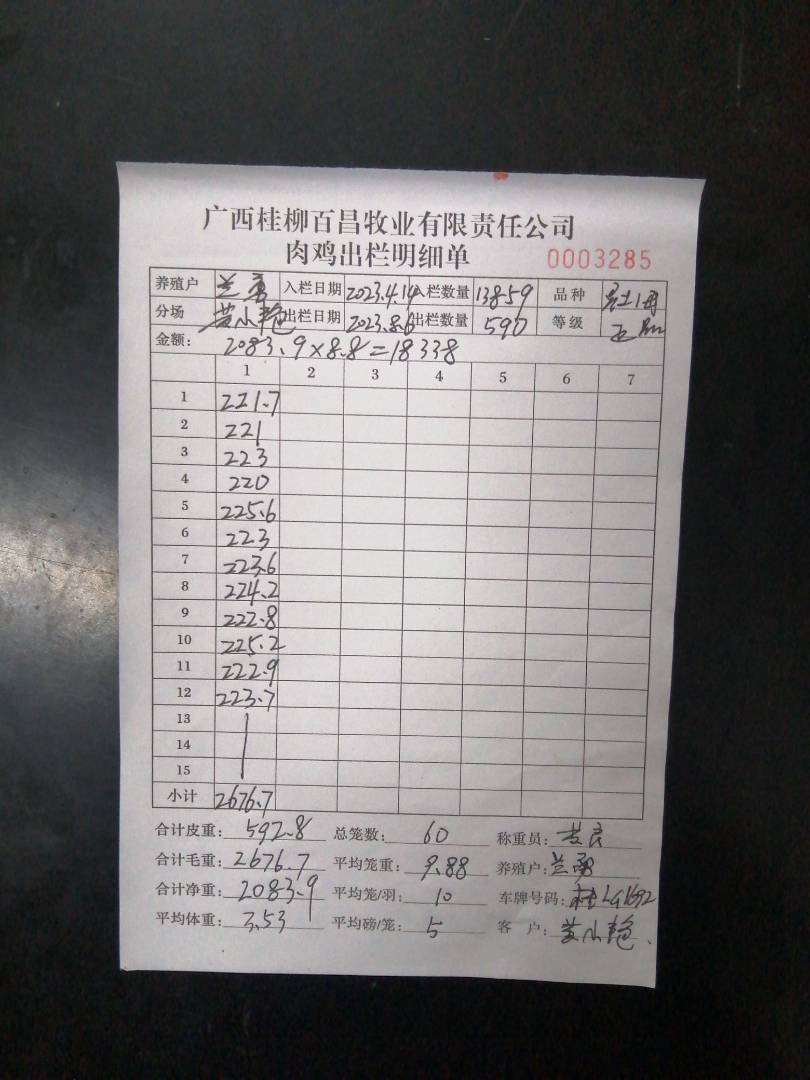 广西桂柳百昌牧业有限责任公司
肉鸡出栏明细单 0003285
养殖户 兰勇 入栏日期 2023.4.14 入栏数量 13859 品种
分场 黄小艳 出栏日期 2023.8.6 出栏数量 590 等级
金额: 2083.9×8.8=18338
1 2 3 4 5 6 7
1 221.7
2 221
3 223
4 220
5 225.6
6 223
7 223.6
8 224.2
9 222.8
10 225.2
11 222.9
12 223.7
13
14
15
小计 2676.7
合计皮重: 592.8 总笼数: 60 称重员:
合计毛重: 2676.7 平均笼重: 9.88 养殖户: 兰勇
合计净重: 2083.9 平均笼/羽: 10 车牌号码:
平均体重: 3.53 平均磅/笼: 5 客 户: 黄小艳